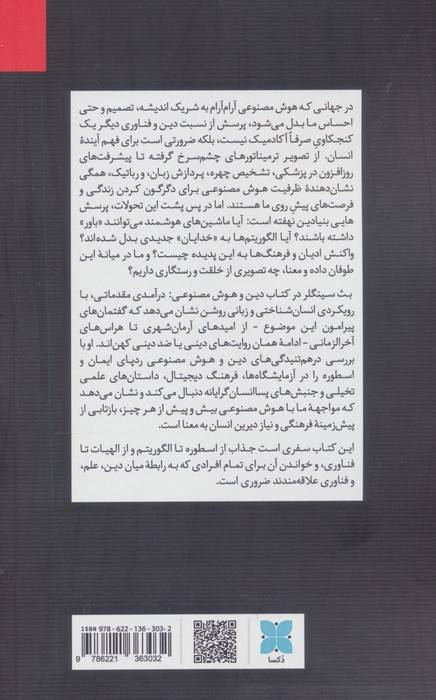 در جهانی که هوش مصنوعی آرام‌آرام به شریک اندیشه، تصمیم و حتی
احساس ما بدل می‌شود، پرسش از نسبت دین و فناوری دیگر یک
کنجکاوی صرفاً آکادمیک نیست، بلکه ضرورتی است برای فهم آیندهٔ
انسان. از تصویر ترمیناتورهای چشم‌سرخ گرفته تا پیشرفت‌های
روزافزون در پزشکی، تشخیص چهره، پردازش زبان، و رباتیک، همگی
نشان‌دهندهٔ ظرفیت هوش مصنوعی برای دگرگون کردن زندگی و
فرصت‌های پیش روی ما هستند. اما در پس پشت این تحولات، پرسش
هایی بنیادین نهفته است: آیا ماشین‌های هوشمند می‌توانند «باور»
داشته باشند؟ آیا الگوریتم‌ها به «خدایان» جدیدی بدل شده‌اند؟
واکنش ادیان و فرهنگ‌ها به این پدیده چیست؟ و ما در میانهٔ این
طوفان داده و معنا، چه تصویری از خلقت و رستگاری داریم؟
بث سینگلر در کتاب دین و هوش مصنوعی: درآمدی مقدماتی، با
رویکردی انسان‌شناختی و زبانی روشن نشان می‌دهد که گفتمان‌های
پیرامون این موضوع - از امیدهای آرمان‌شهری تا هراس‌های
آخرالزمانی - ادامهٔ همان روایت‌های دینی یا ضد دینی کهن‌اند. او با
بررسی درهم‌تنیدگی‌های دین و هوش مصنوعی ردپای ایمان و
اسطوره را در آزمایشگاه‌ها، فرهنگ دیجیتال، داستان‌های علمی
تخیلی و جنبش‌های پساانسان‌گرایانه دنبال می‌کند و نشان می‌دهد
که مواجههٔ ما با هوش مصنوعی بیش و پیش از هر چیز، بازتابی از
پیش‌زمینهٔ فرهنگی و نیاز دیرین انسان به معنا است.
این کتاب سفری است جذاب از اسطوره تا الگوریتم و از الهیات تا
فناوری، و خواندن آن برای تمام افرادی که به رابطهٔ میان دین، علم،
و فناوری علاقه‌مندند ضروری است.
دکسا
ISBN 978-622-136-303-2
9 786221 363032